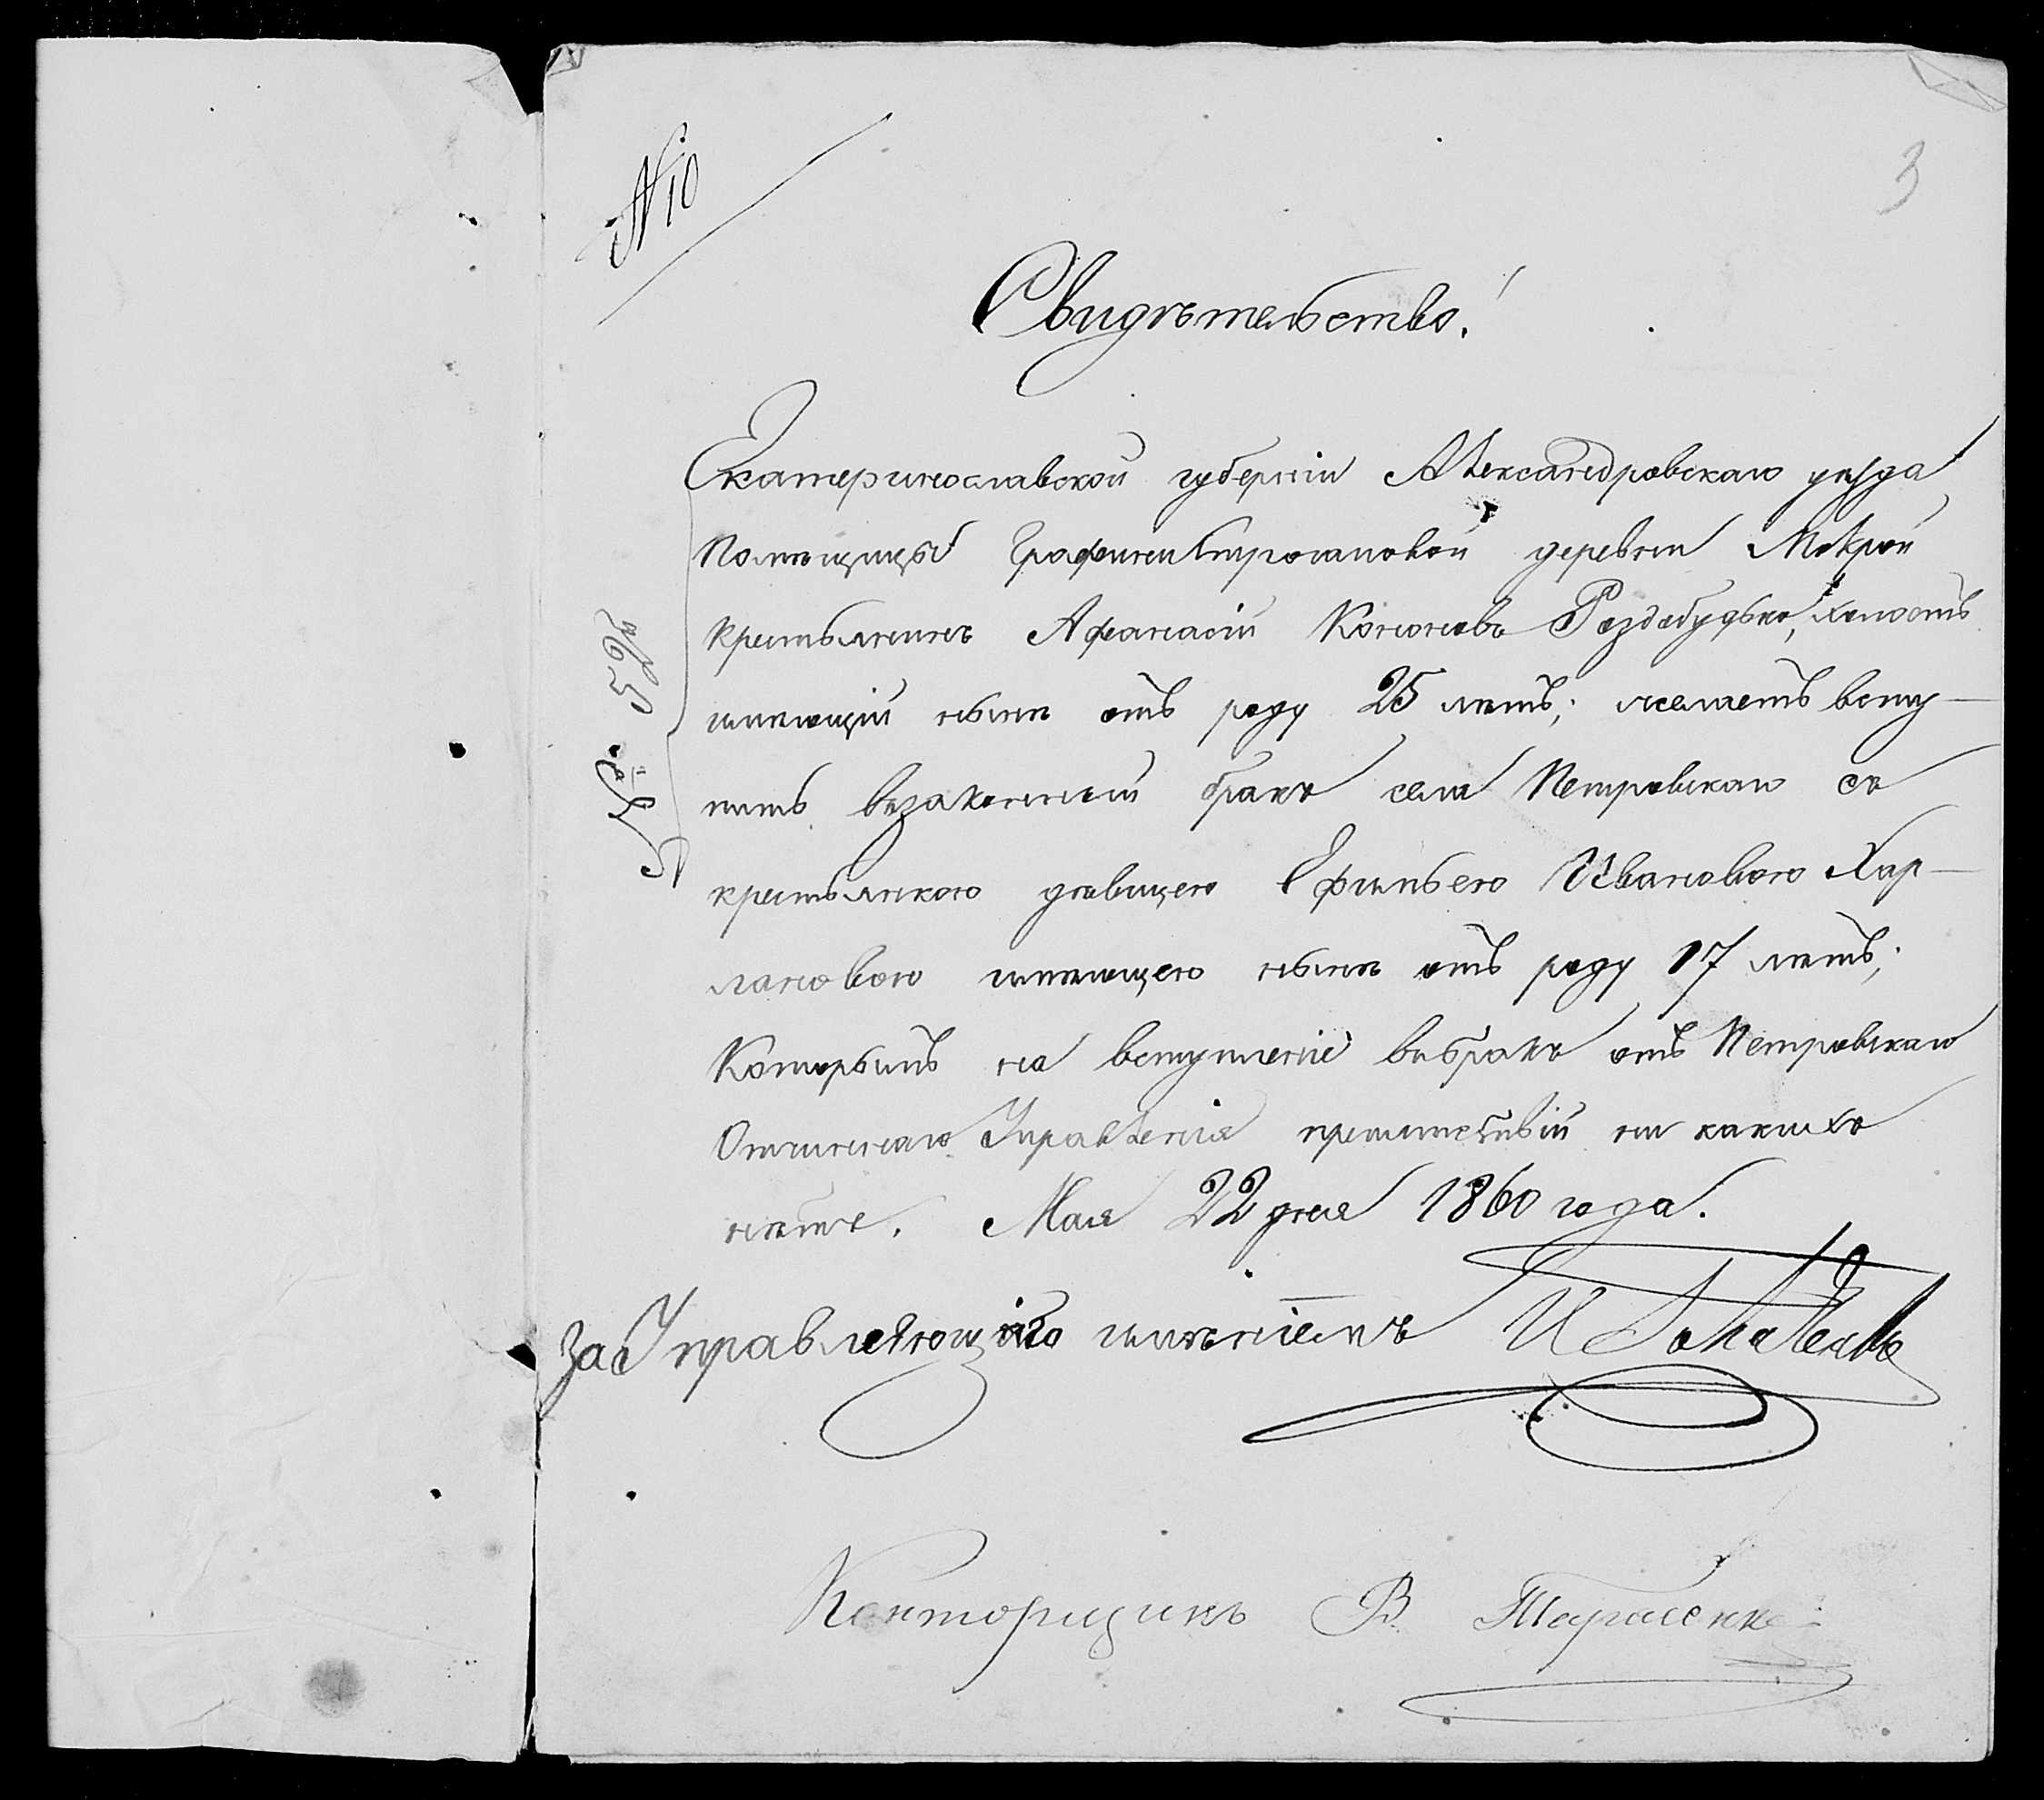 3
№ 10
Свидѣтельство.
Екатеринославской губерніи Александровскаго уѣзда
Помѣщицы Графини Строгановой деревни Мокрой
крестьянинъ Афанасій Кононовъ Роздобудько, холостъ
имѣющій нынѣ отъ роду 25 лѣтъ; желаетъ всту-
пить взаконный бракъ села Петровскаго съ
крестьянкою дѣвицею Ефимьею Ивановою Хар-
лановою имѣющею нынѣ отъ роду 17 лѣтъ;
Которымъ на вступленіе вбракъ отъ Петровскаго
Отчиннаго Управленія препятствій ни какихъ
нѣтъ. Мая 22 дня 1860 года.
За Управляющаго имѣніемъ И
Конторщикъ В. Тарасенко